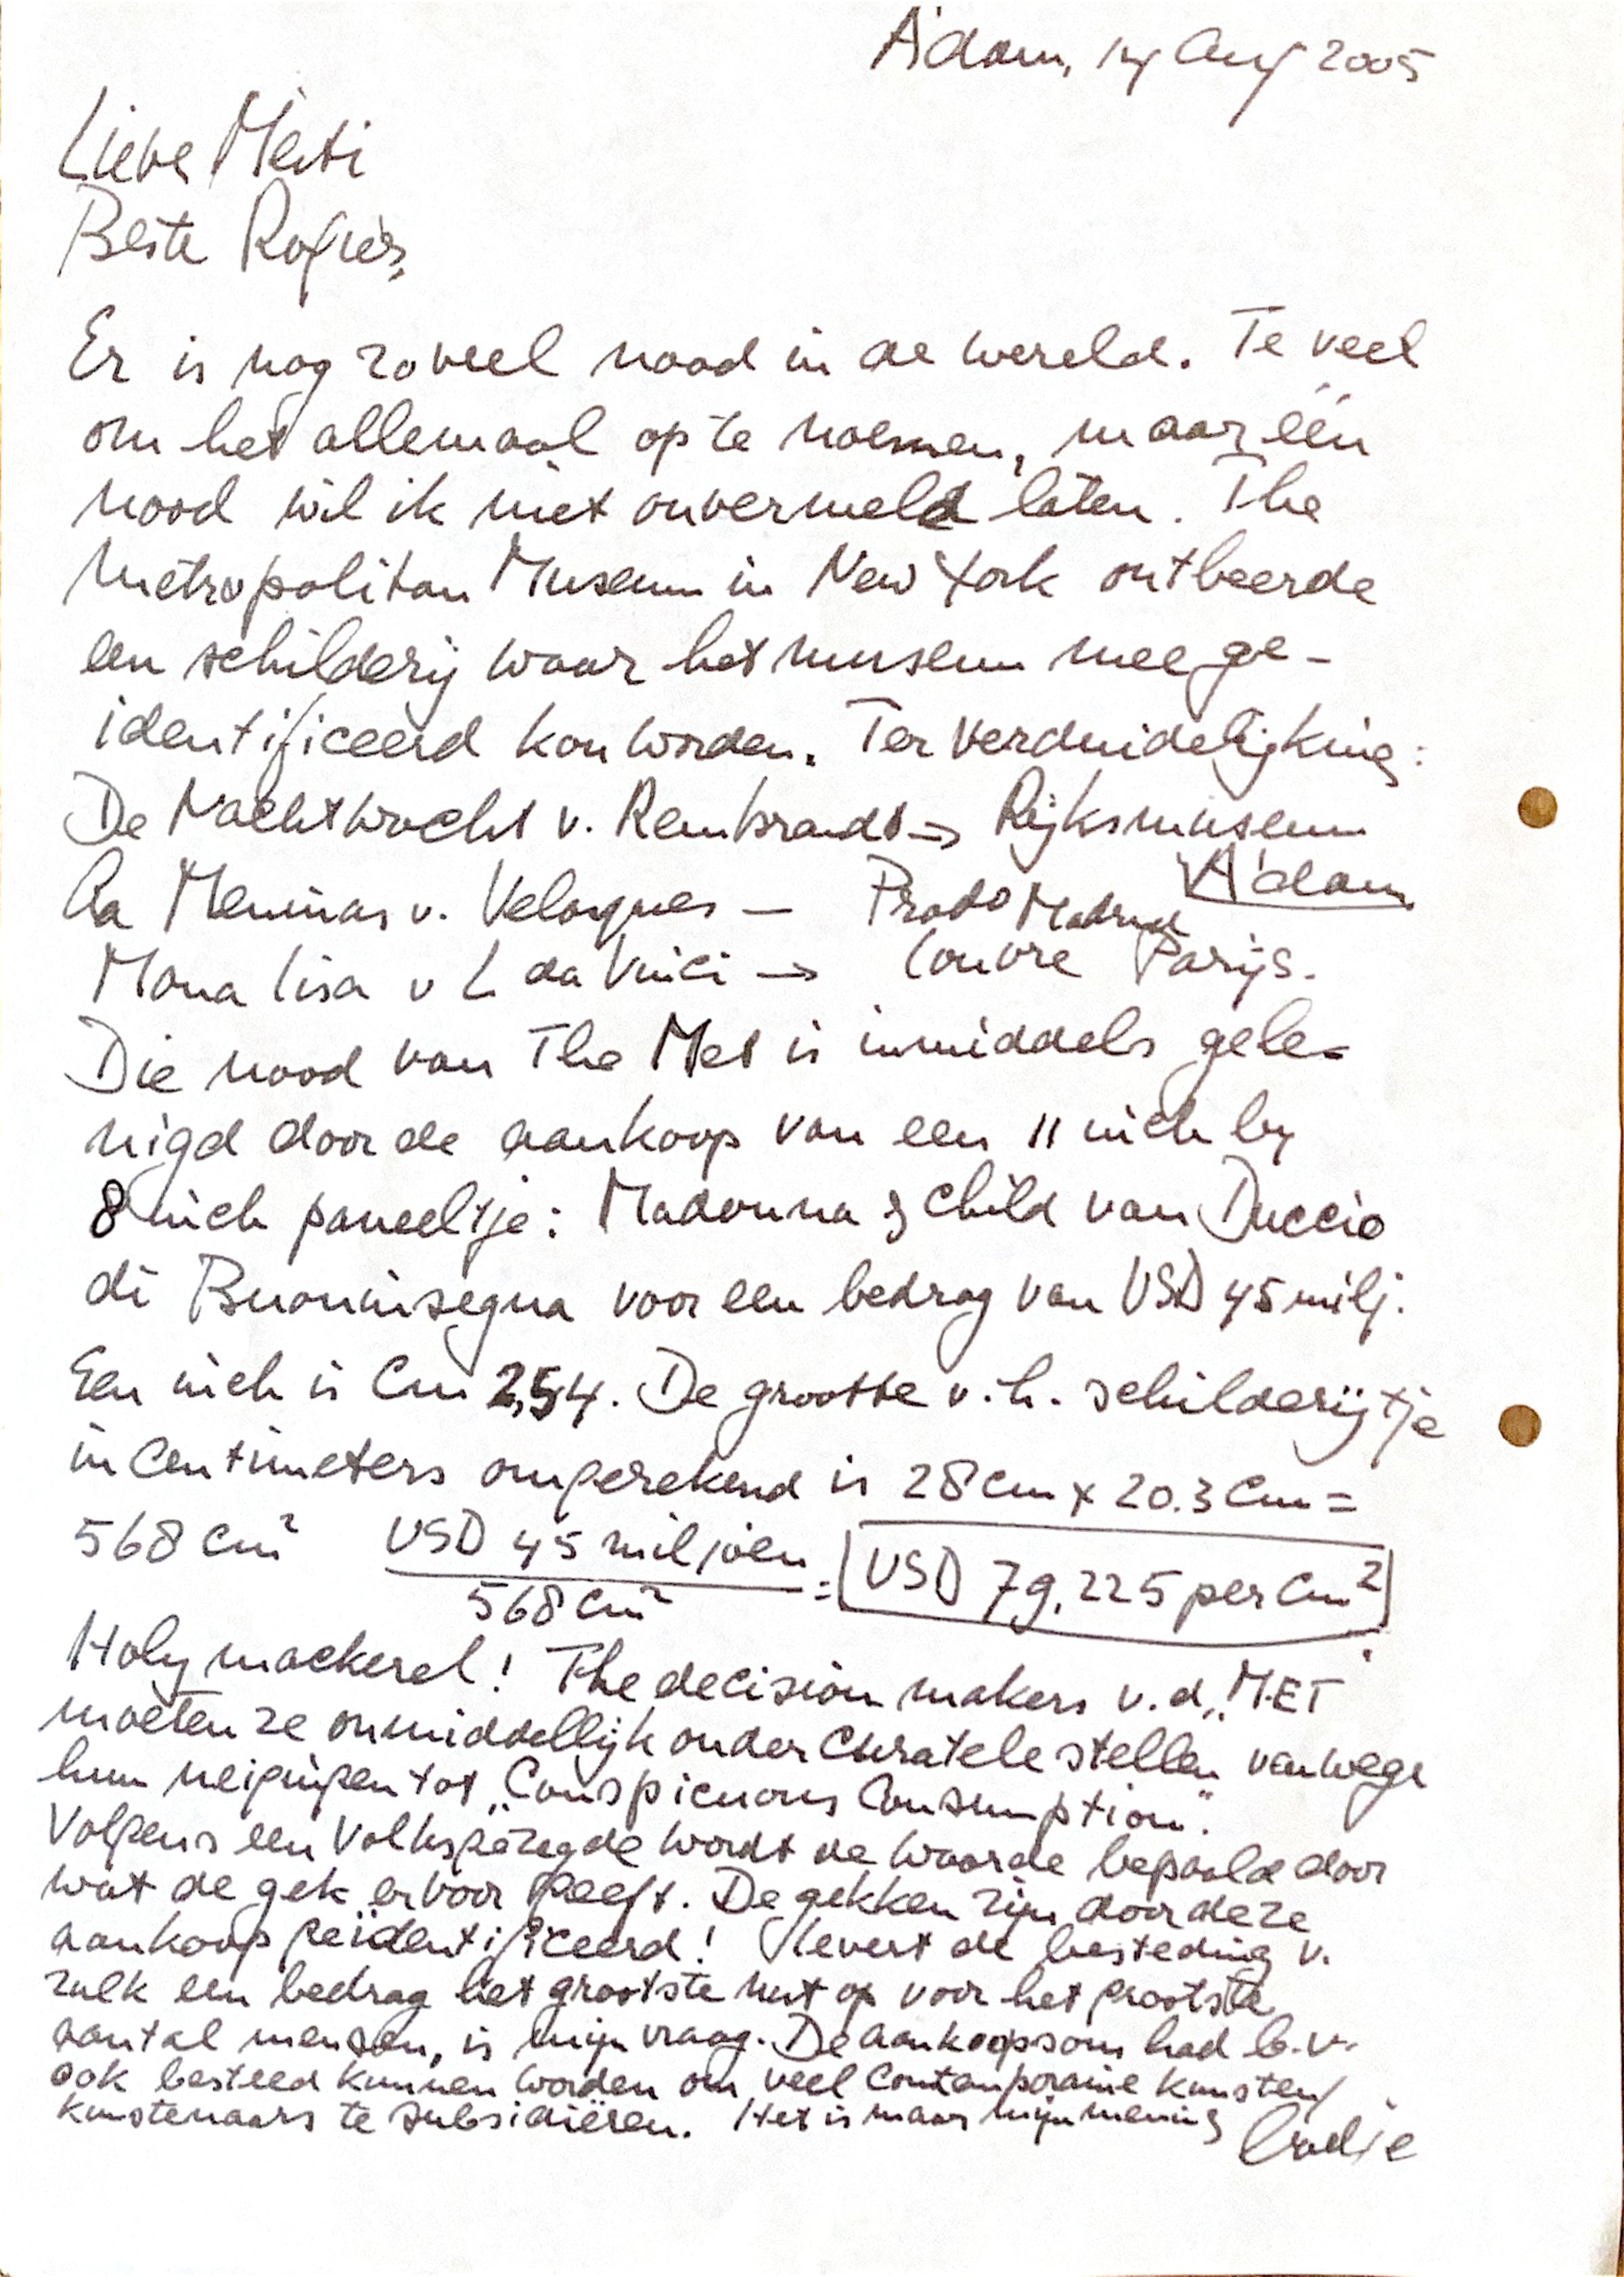 A'dam, 14 Aug 2005
Lieve Meti
Beste Rogier,
Er is nog zoveel nood in de wereld. Te veel
om het allemaal op te noemen, maar één
nood wil ik niet onvermeld laten. The
Metropolitan Museum in New York ontbeerde
een schilderij waar het museum mee ge-
identificeerd kon worden. Ter verduidelijking:
De Nachtwacht v. Rembrandt → Rijksmuseum
A'dam
La Meninas v. Velasques — Prado Madrid
Mona Lisa v L da Vinci → Louvre Parijs.
Die nood van The Met is inmiddels gele-
nigd door de aankoop van een 11 inch by
8 inch paneeltje: Madonna & Child van Duccio
di Buoninsegna voor een bedrag van USD 45 milj.
Een inch is Cm 2,54. De grootte v.h. schilderijtje
in Centimeters omgerekend is 28 cm x 20.3 Cm =
568 cm² USD 45 miljoen / 568 cm² = USD 79,225 per Cm²
Holy mackerel! The decision makers v.d. „MET
moeten ze onmiddellijk onder Curatele stellen vanwege
hun neigingen tot „Conspicuous Consumption".
Volgens een Volksgezegde wordt de waarde bepaald door
wat de gek ervoor geeft. De gekken zijn door deze
aankoop geïdentificeerd! Levert de besteding v.
zulk een bedrag het grootste nut op voor het grootste
aantal mensen, is mijn vraag. De aankoopsom had b.v.
ook besteed kunnen worden om veel Contemporaine kunsten/
kunstenaars te subsidiëren. Het is maar mijn mening